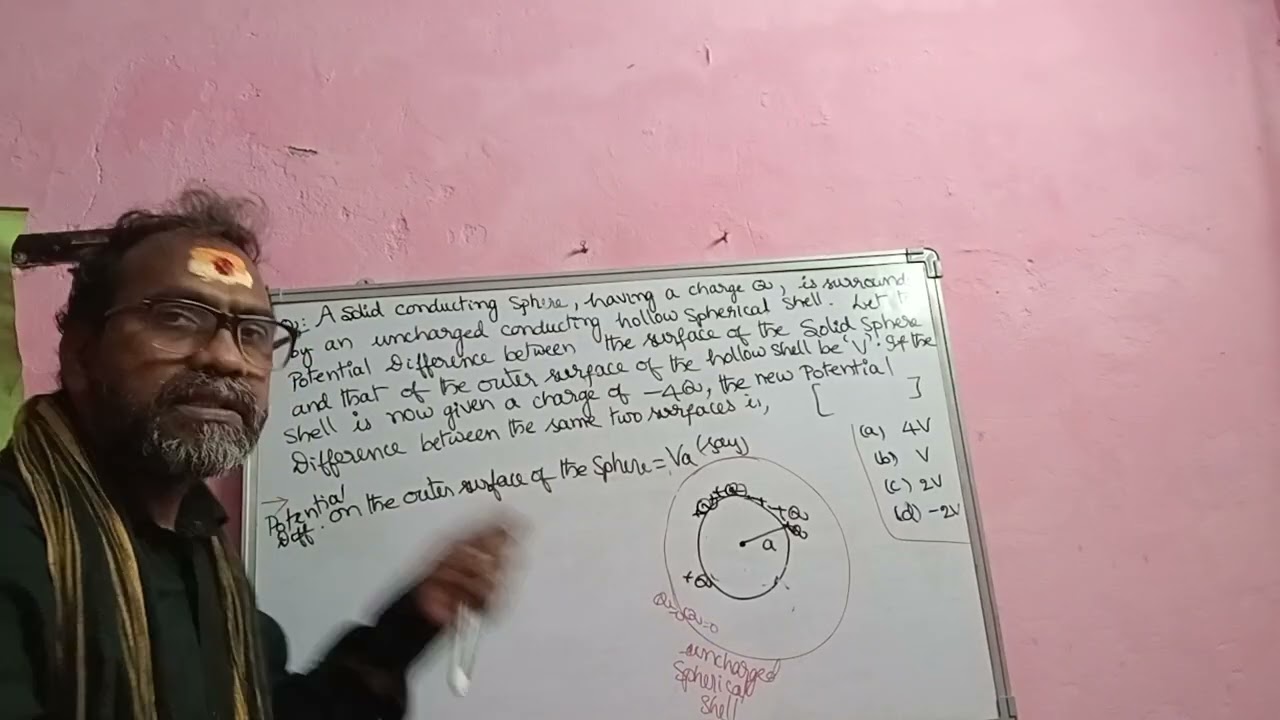 A Solid conducting Sphere, having a charge Q, is surround
by an uncharged conducting hollow Spherical Shell. Let
Potential Difference between the surface of the Solid Sphere
and that of the outer surface of the hollow shell be 'V'. If the
Shell is now given a charge of -4Q, the new Potential
Difference between the same two surfaces is, [ ]
(a) 4V
(b) V
(c) 2V
(d) -2V
→ Potential
Diff. on the outer surface of the Sphere = Va (say)
+Q
+Q
+Q
a
+Q
Q=0
uncharged
Spherical
Shell